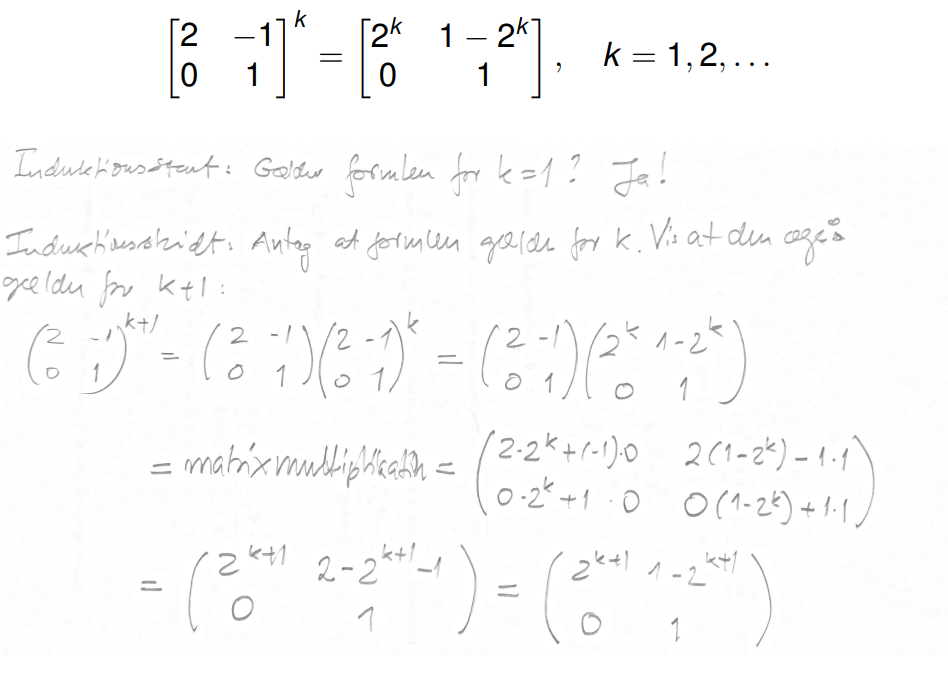 [2 −1; 0 1]^k = [2^k 1 − 2^k; 0 1], k = 1, 2, …
Induktionsstart: Gælder formlen for k=1? Ja!
Induktionsskridt: Antag at formlen gælder for k. Vis at den også
gælder for k+1:
(2 -1; 0 1)^{k+1} = (2 -1; 0 1)(2 -1; 0 1)^k = (2 -1; 0 1)(2^k 1-2^k; 0 1)
= matrixmultiplikation = (2·2^k+(-1)·0 2(1-2^k)-1·1; 0·2^k+1·0 0(1-2^k)+1·1)
= (2^{k+1} 2-2^{k+1}-1; 0 1) = (2^{k+1} 1-2^{k+1}; 0 1)